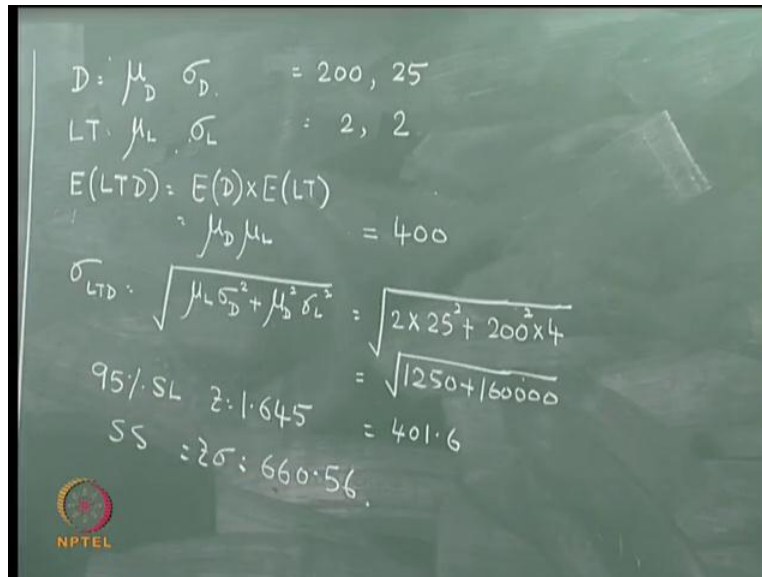 D: μ_D σ_D. = 200, 25
LT. μ_L . σ_L : 2, 2
E(LTD): E(D)×E(LT)
: μ_D μ_L = 400
σ_LTD: √(μ_L σ_D² + μ_D² σ_L²) = √(2×25² + 200²×4)
= √(1250+160000)
95% SL Z:1.645 = 401.6
SS = Zσ: 660.56.
NPTEL